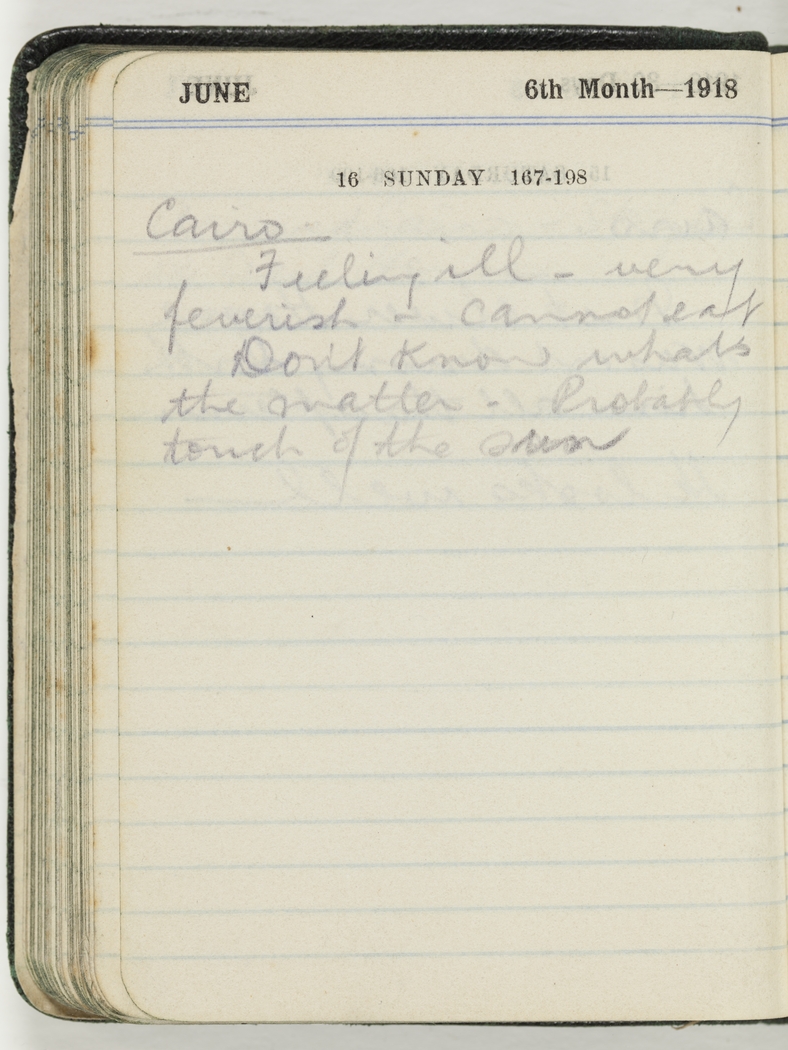 JUNE 6th Month—1918
16 SUNDAY 167-198
Cairo
Feeling ill - very
feverish - cannot eat
Don't know whats
the matter - Probably
touch of the sun